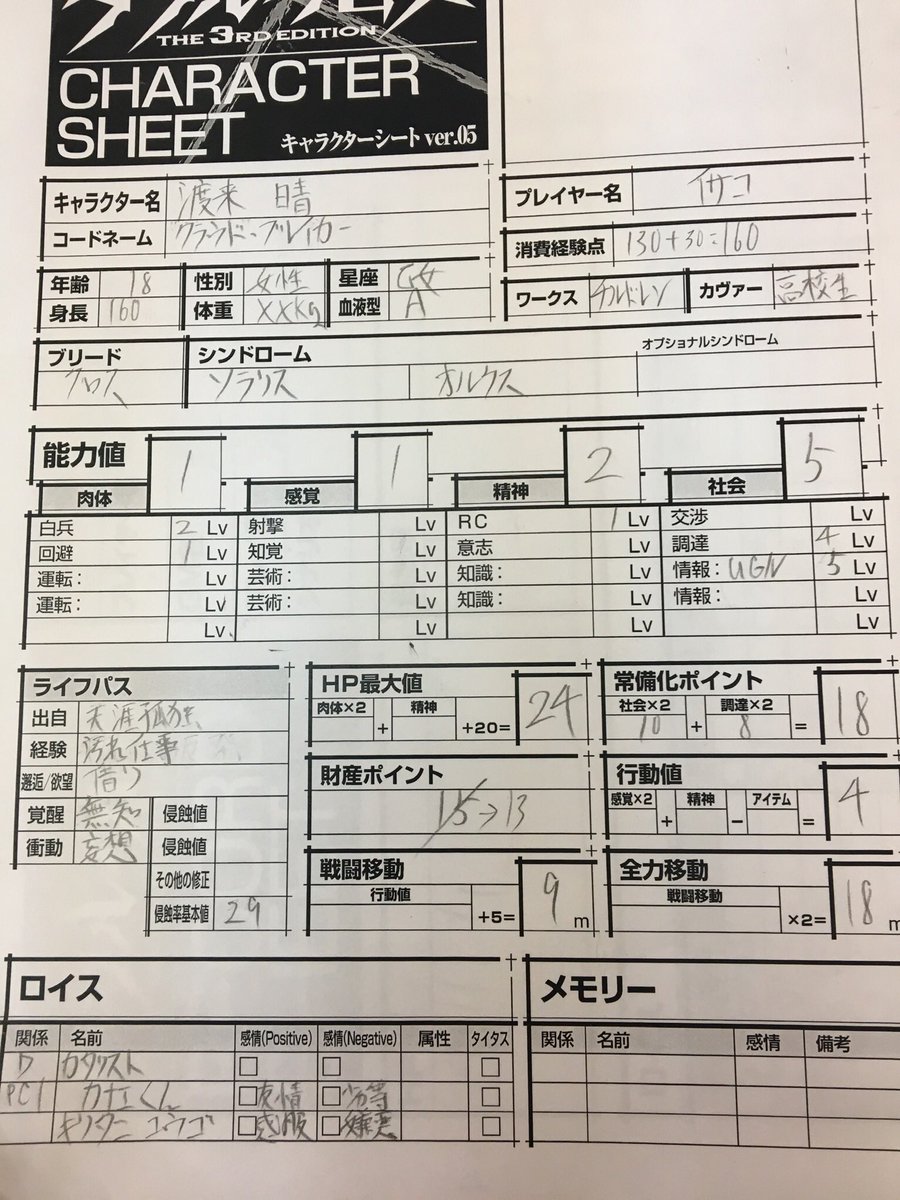 ダブルクロス
THE 3RD EDITION
CHARACTER
SHEET
キャラクターシート ver.05
キャラクター名 渡来 晴
コードネーム クラウド・ブレイカー
プレイヤー名 イサコ
消費経験点 130+30=160
年齢 18 性別 女性 星座 乙女
身長 160 体重 XXKg 血液型 A
ワークス チルドレン カヴァー 高校生
ブリード シンドローム オプショナルシンドローム
クロス ソラリス オルクス
能力値
肉体 1 感覚 1 精神 2 社会 5
白兵 2 Lv 射撃 Lv RC 1 Lv 交渉 Lv
回避 1 Lv 知覚 1 Lv 意志 Lv 調達 4 Lv
運転: Lv 芸術: Lv 知識: Lv 情報: UGN 5 Lv
運転: Lv 芸術: Lv 知識: Lv 情報: Lv
Lv Lv Lv Lv
ライフパス
出自 天涯孤独
経験 汚れ仕事
邂逅/欲望 借り
覚醒 無知 侵蝕値
衝動 妄想 侵蝕値
その他の修正
侵蝕率基本値 29
HP最大値
肉体×2 + 精神 +20= 24
財産ポイント
15→13
戦闘移動
行動値 +5= 9 m
常備化ポイント
社会×2 10 + 調達×2 8 = 18
行動値
感覚×2 + 精神 − アイテム = 4
全力移動
戦闘移動 ×2= 18 m
ロイス
関係 名前 感情(Positive) 感情(Negative) 属性 タイタス
D カタリスト □ □ □
PC1 カナエくん □友情 □劣等 □
キリタニ ユウゴ □感服 □嫌悪 □
メモリー
関係 名前 感情 備考